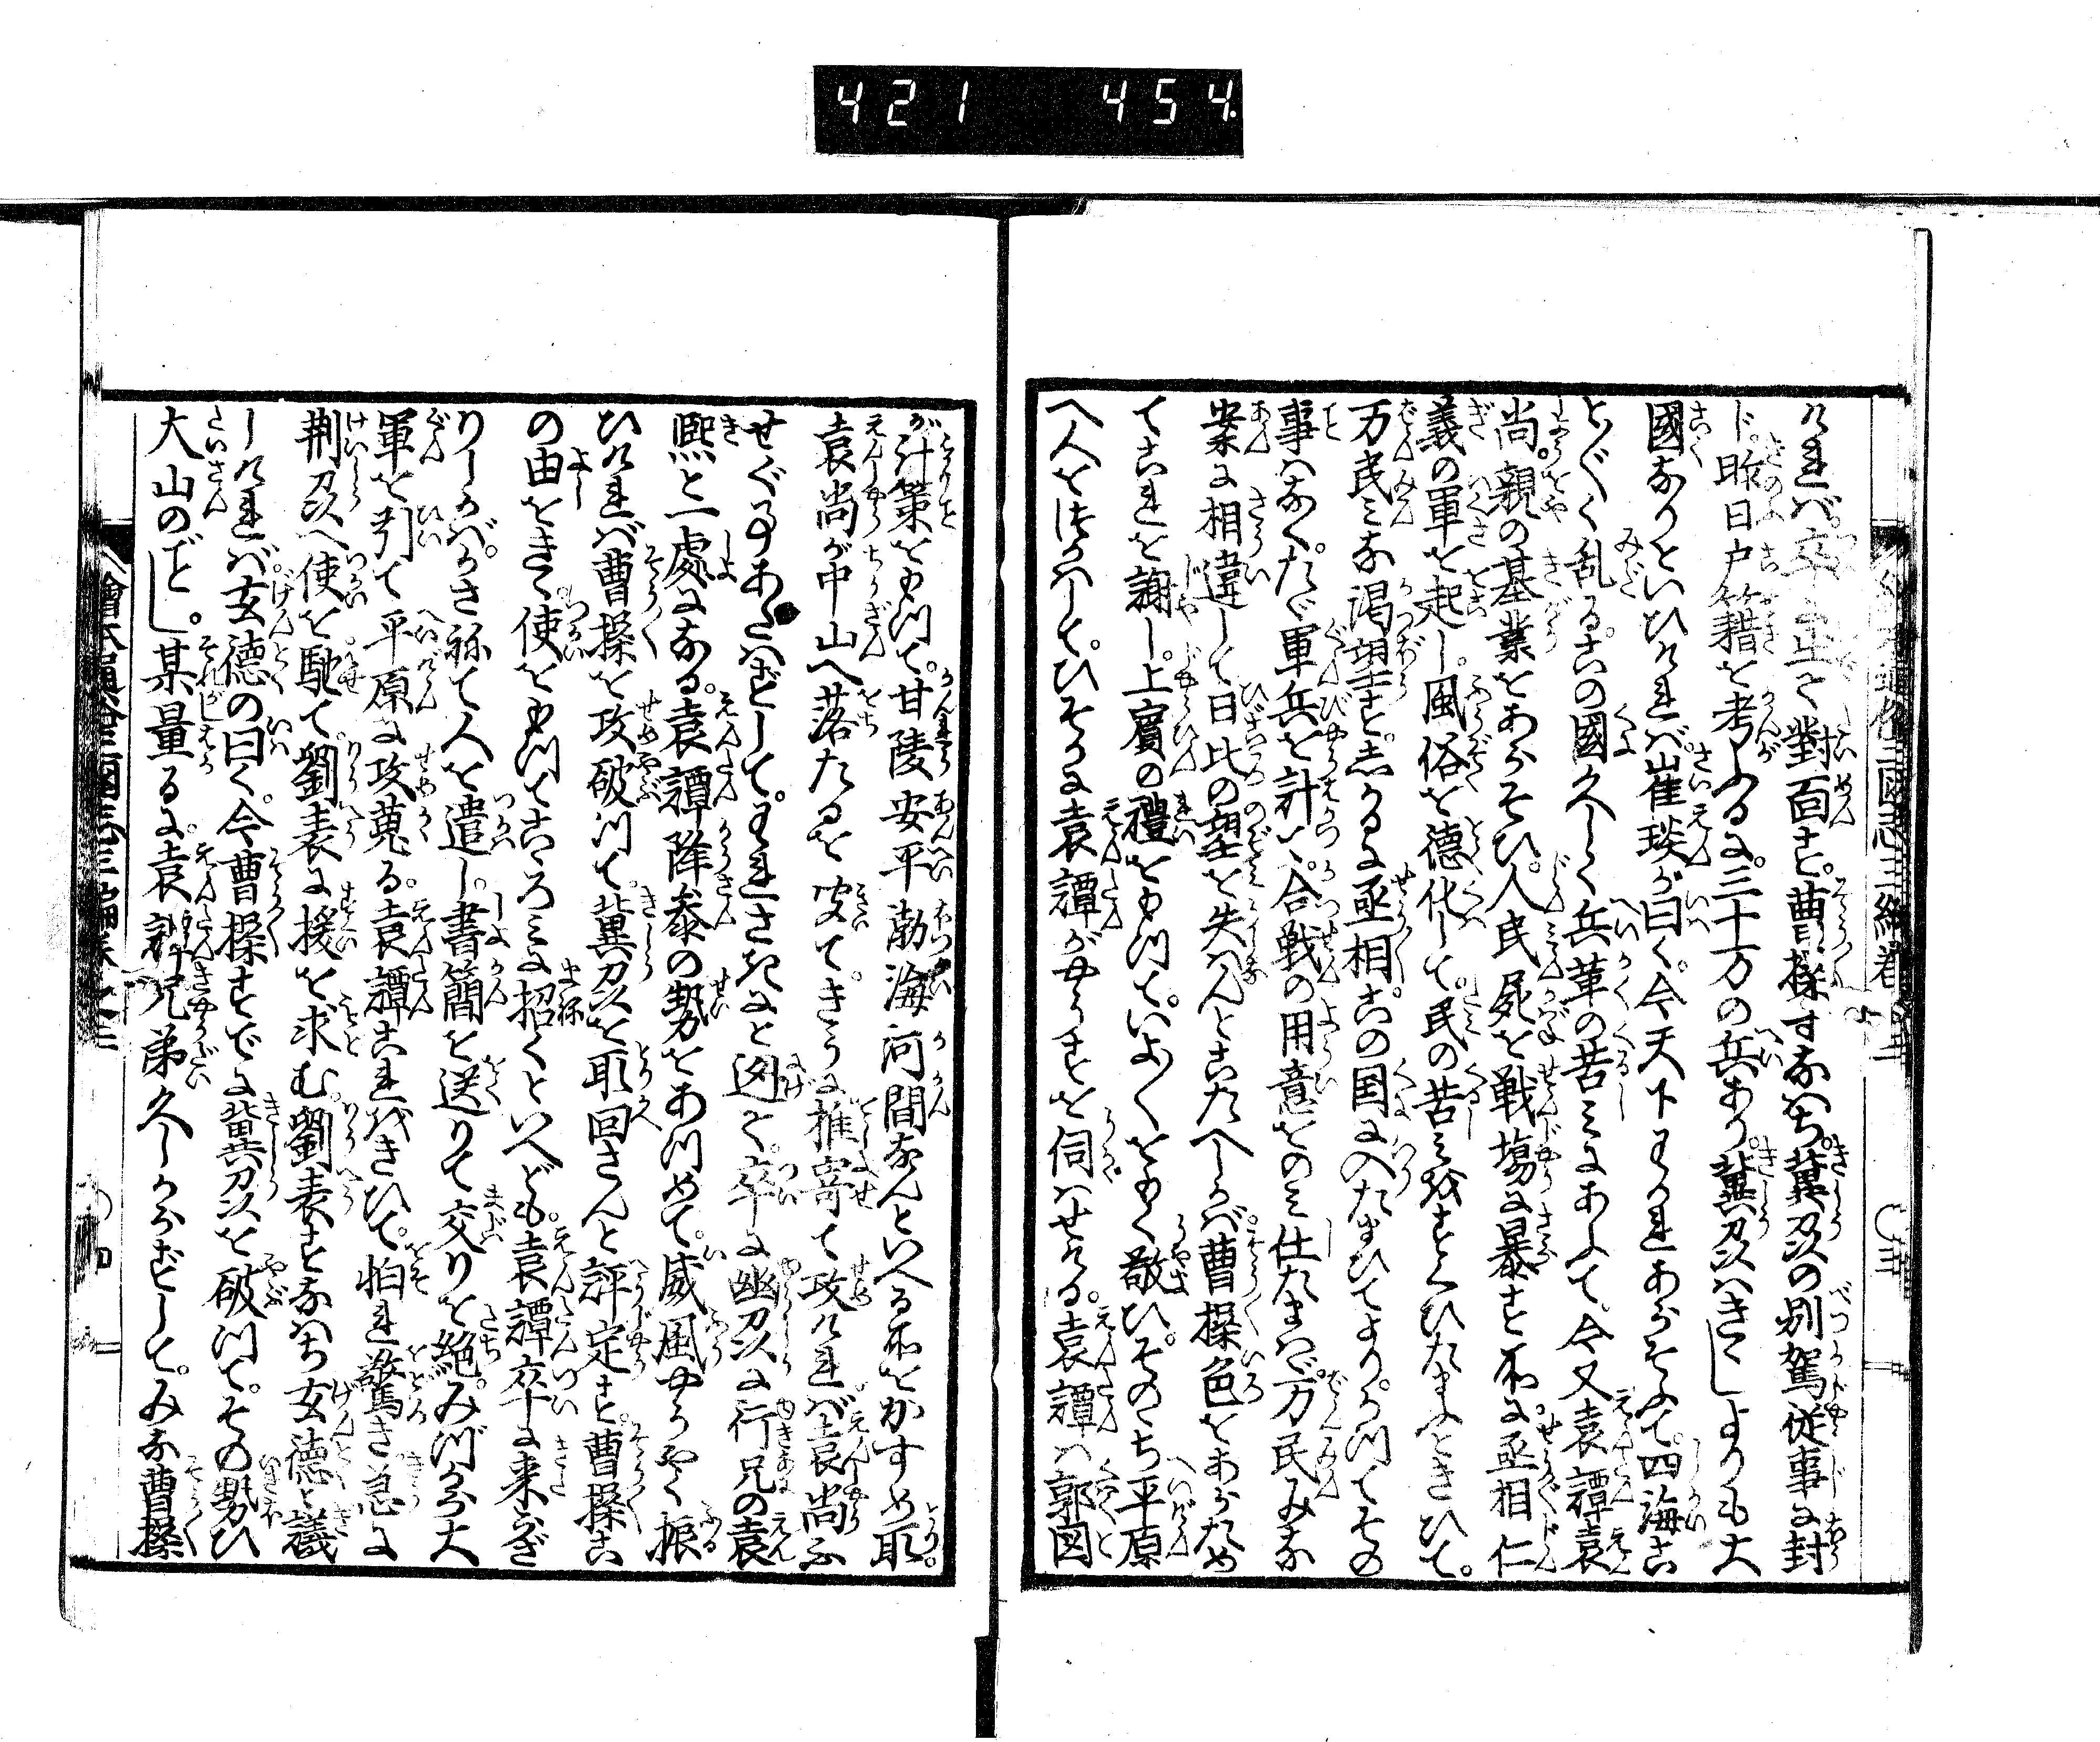 421 454
ければ。卒に出て對面す。曹操すなはち。冀州の別駕従事に封
ド。昨日戸籍を考ふるに。三十万の兵あり。冀州はきこしよりも大
國なりといひければ。崔琰が曰く。今天下わかれあらそふて。四海こ
とごとく乱る。この國久しく兵革の苦ミにあふて。今又袁譚袁
尚。親の基業をあらそひ。人民屍を戦場に暴す所に。丞相仁
義の軍を起し。風俗を徳化して。民の苦ミをすくひたまふときひて。
万民ミな渇望す。しかるに丞相。この国に入たまひてより。かつてその
事はなく。たゞ軍兵を計へ。合戦の用意をのミ仕たまはゞ。万民みな
案に相違して日比の望を失はんとこたへしかば。曹操色をあらため
てこれを謝し。上賓の禮をもつて。いよ〱をもく敬ひ。そののち平原
へ人をつかハして。ひそかに袁譚がやうすを伺ハせける。袁譚ハ郭図
が計策をもつて。甘陵安平渤海河間なんどいへる所をかすめ取。
袁尚が中山へ落たるを聞て。きうに推寄て攻ければ。袁尚ふ
せぐ事あたはずして。われさきにと迯て。卒に幽州に行兄の袁
熙と一處になる。袁譚降参の勢をあつめて。威風やうやく振
ひければ曹操を攻破つて。冀州を取回さんと評定す。曹操こ
の由をきゝ。使をもつてこゝろミに招くといへども。袁譚卒に来らざ
りしかば。かさねて人を遣し。書簡を送りて交りを絶。みづから大
軍を引て平原に攻蒐る。袁譚これをきひて。怕れ驚き急に
荆州へ使を馳て。劉表に援を求む。劉表すなはち玄徳と議
しければ。玄徳の曰く。今曹操すでに冀州を破つて。その勢ひ
大山のごとし。某量るに。袁譚兄弟久しからずして。みな曹操